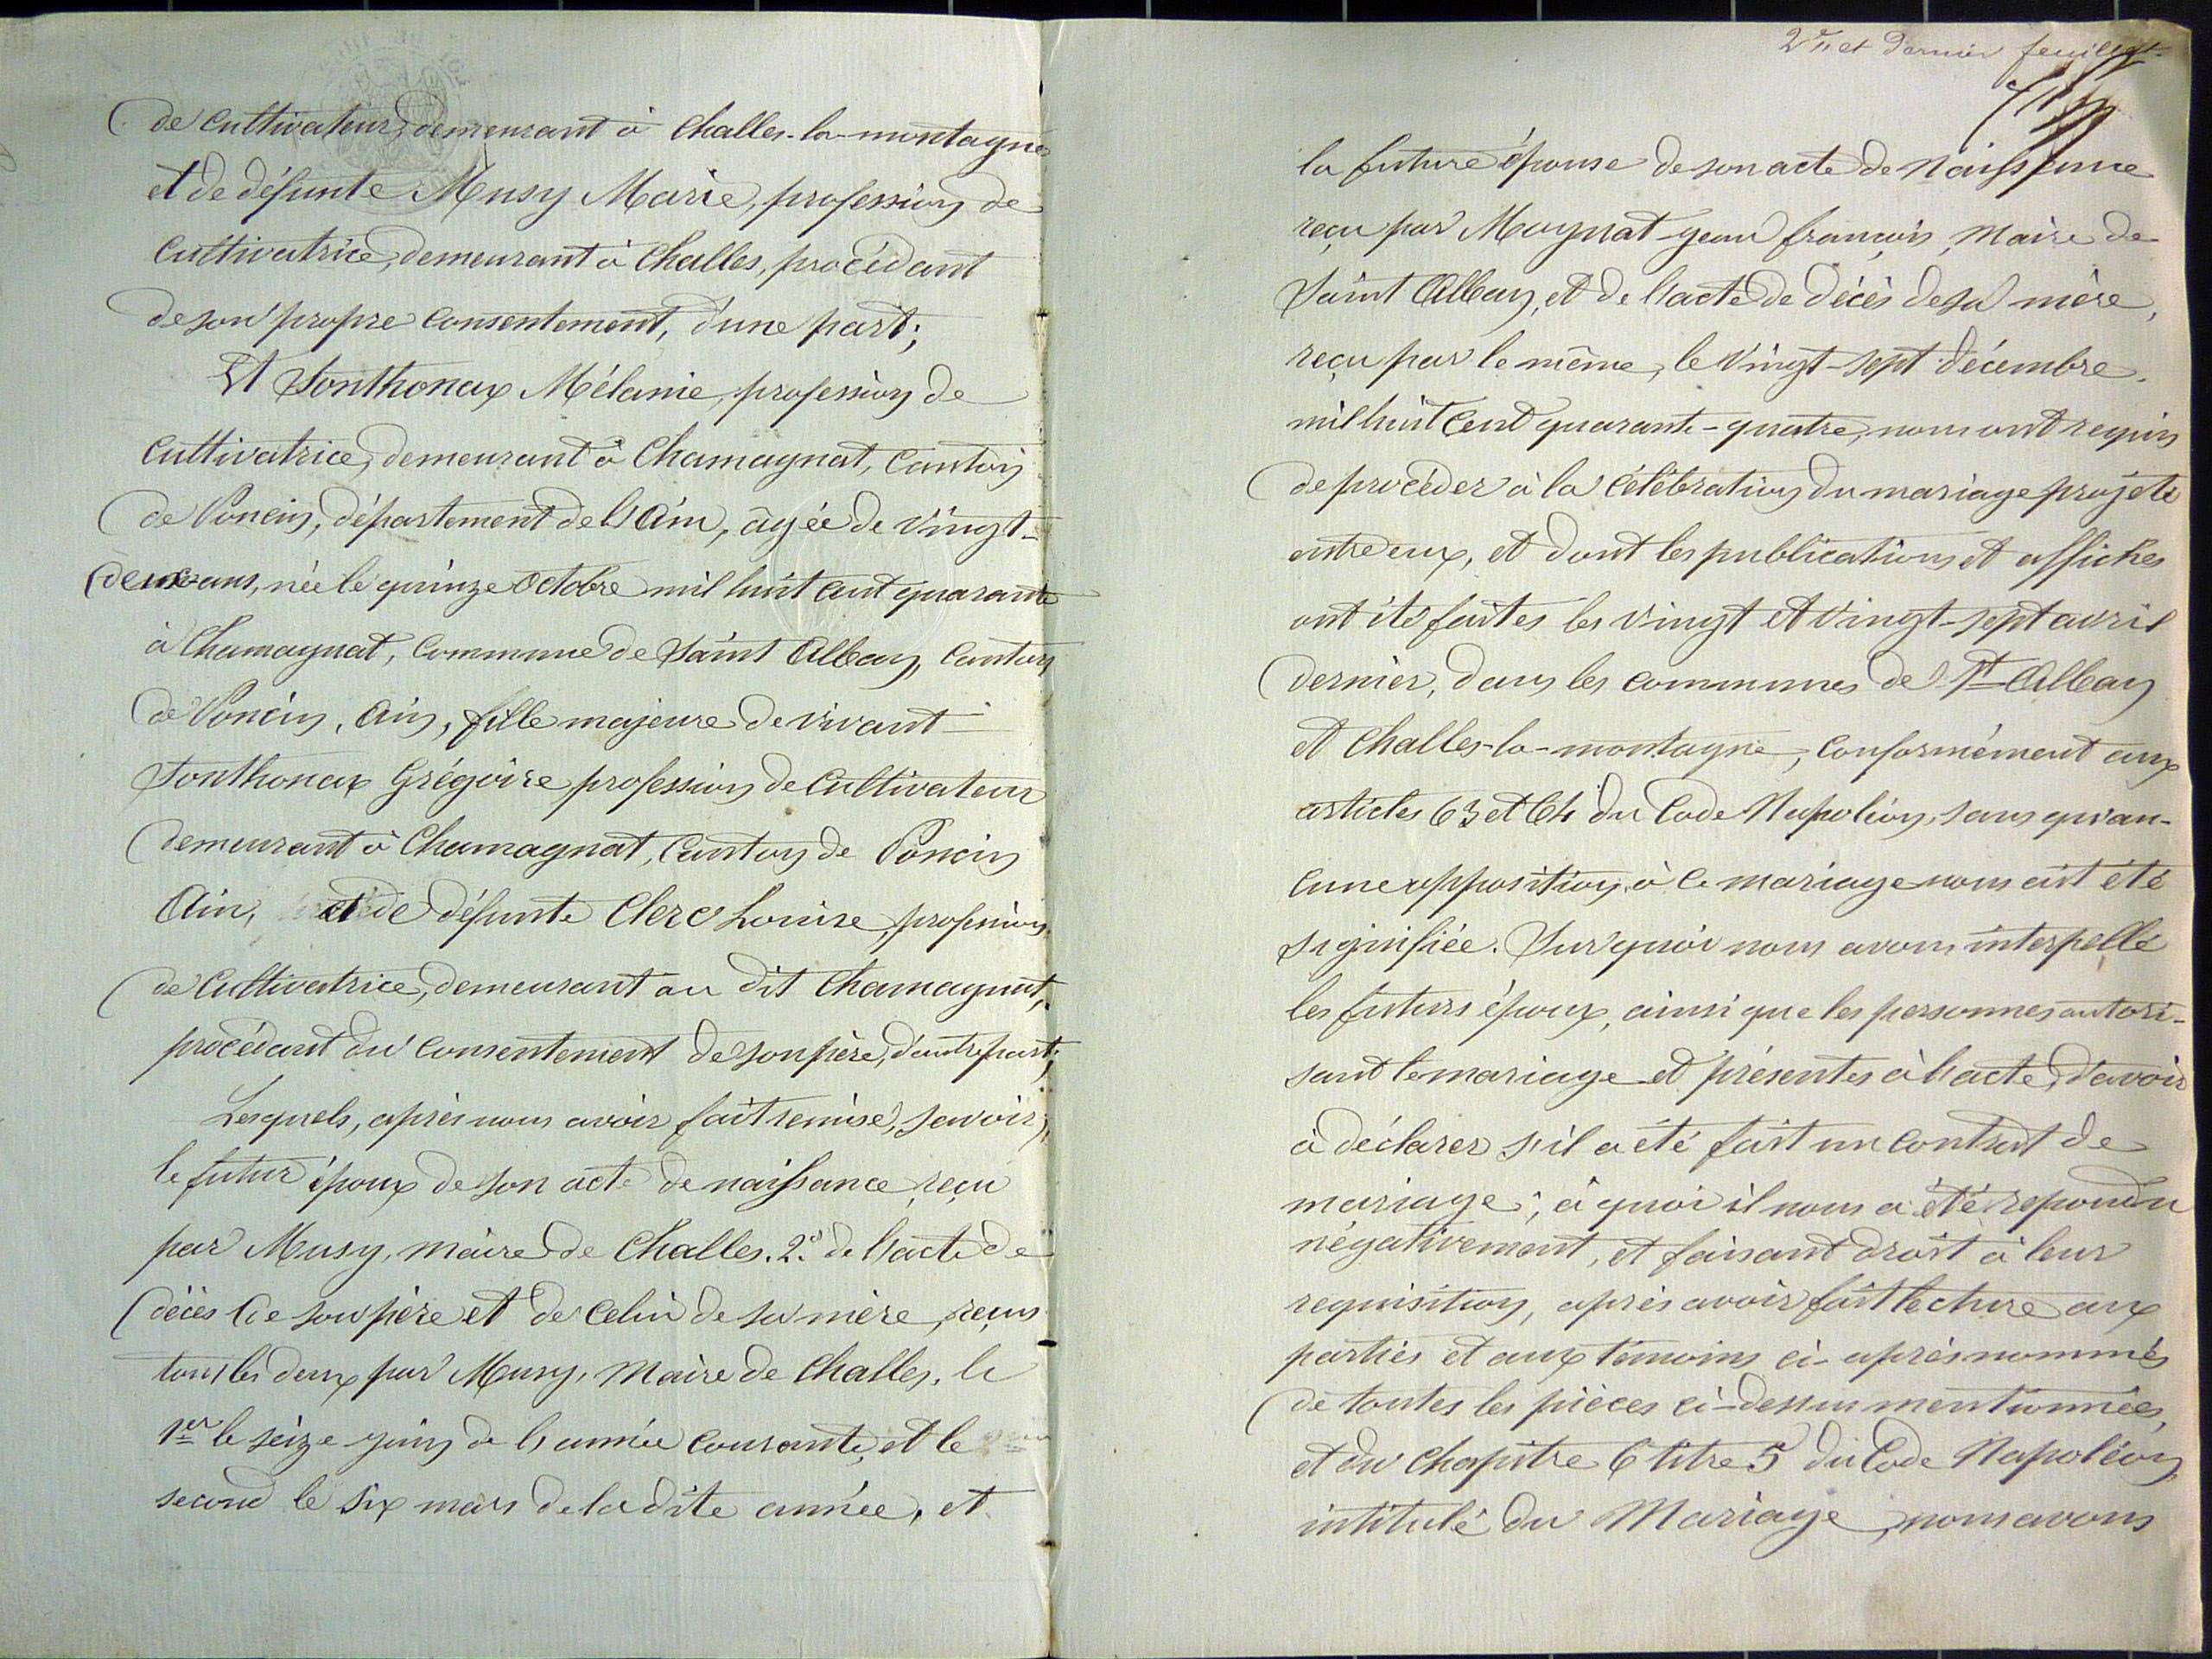 de cultivateur, demeurant à Challes-la-montagne
et de défunte Musy Marie, profession de
Cultivatrice, demeurant à Challes, procédant
de son propre consentement, d'une part;
Et Sonthonax Mélanie, profession de
cultivatrice, demeurant à Chamagnat, Canton
de Poncin, département de l'Ain, âgée de vingt-
deux ans, née le quinze Octobre mil huit cent quarante
à Chamagnat, Commune de Saint Alban, Canton
de Poncin, Ain, fille majeure de vivant
Sonthonax Grégoire profession de Cultivateur
demeurant à Chamagnat, Canton de Poncin
Ain, et de défunte Clerc Louise, profession
de Cultivatrice, demeurant au dit Chamagnat,
procédant du consentement de son père, d'autre part;
Lesquels, après nous avoir fait remise, savoir,
le futur époux de son acte de naissance reçu
par Musy, maire de Challes. 2º de l'acte de
décès de son père et de celui de sa mère, reçus
tous les deux par Musy, Maire de Challes, le
1er le seize juin de l'année courante, et le
second le six mars de la dite année, et
2e et dernier feuillet
la future épouse de son acte de Naissance
reçu par Mugnat jean françois, Maire de
Saint Alban, et de l'acte de décès de sa mère,
reçu par le même, le vingt-sept décembre
mil huit cent quarante-quatre, nous ont requis
de procéder à la célébration du mariage projeté
entre eux, et dont les publications et affiches
ont été faites les vingt et vingt-sept avril
dernier, dans les communes de St Alban
et Challes-la-montagne, conformément aux
articles 63 et 64 du Code Napoléon, sans qu'au-
cune opposition à ce mariage nous ait été
signifiée. Sur quoi nous avons interpellé
les futurs époux, ainsi que les personnes autori-
sant le mariage et présentes à l'acte, d'avoir
à déclarer s'il a été fait un contrat de
mariage; à quoi il nous a été repondu
négativement, et faisant droit à leur
requisition, après avoir fait lecture aux
parties et aux témoins ci-après nommés
de toutes les pièces ci-dessus mentionnées,
et du chapitre 6 titre 5 du Code Napoléon,
intitulé du Mariage, nous avons